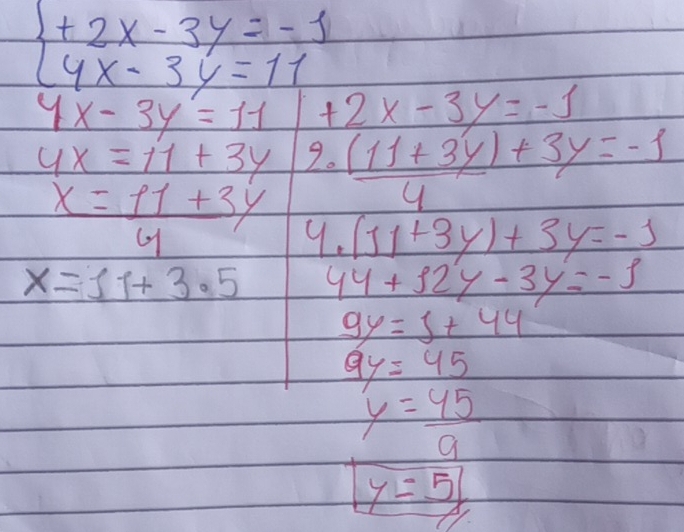 {+2x - 3y = -1
4x - 3y = 11
4x - 3y = 11
4x = 11 + 3y
x = 11 + 3y
4
x = 11 + 3.5
+2x - 3y = -1
2.(11 + 3y) + 3y = -1
4
4.(11 + 3y) + 3y = -1
44 + 12y - 3y = -1
9y = 1 + 44
9y = 45
y = 45
9
y = 5